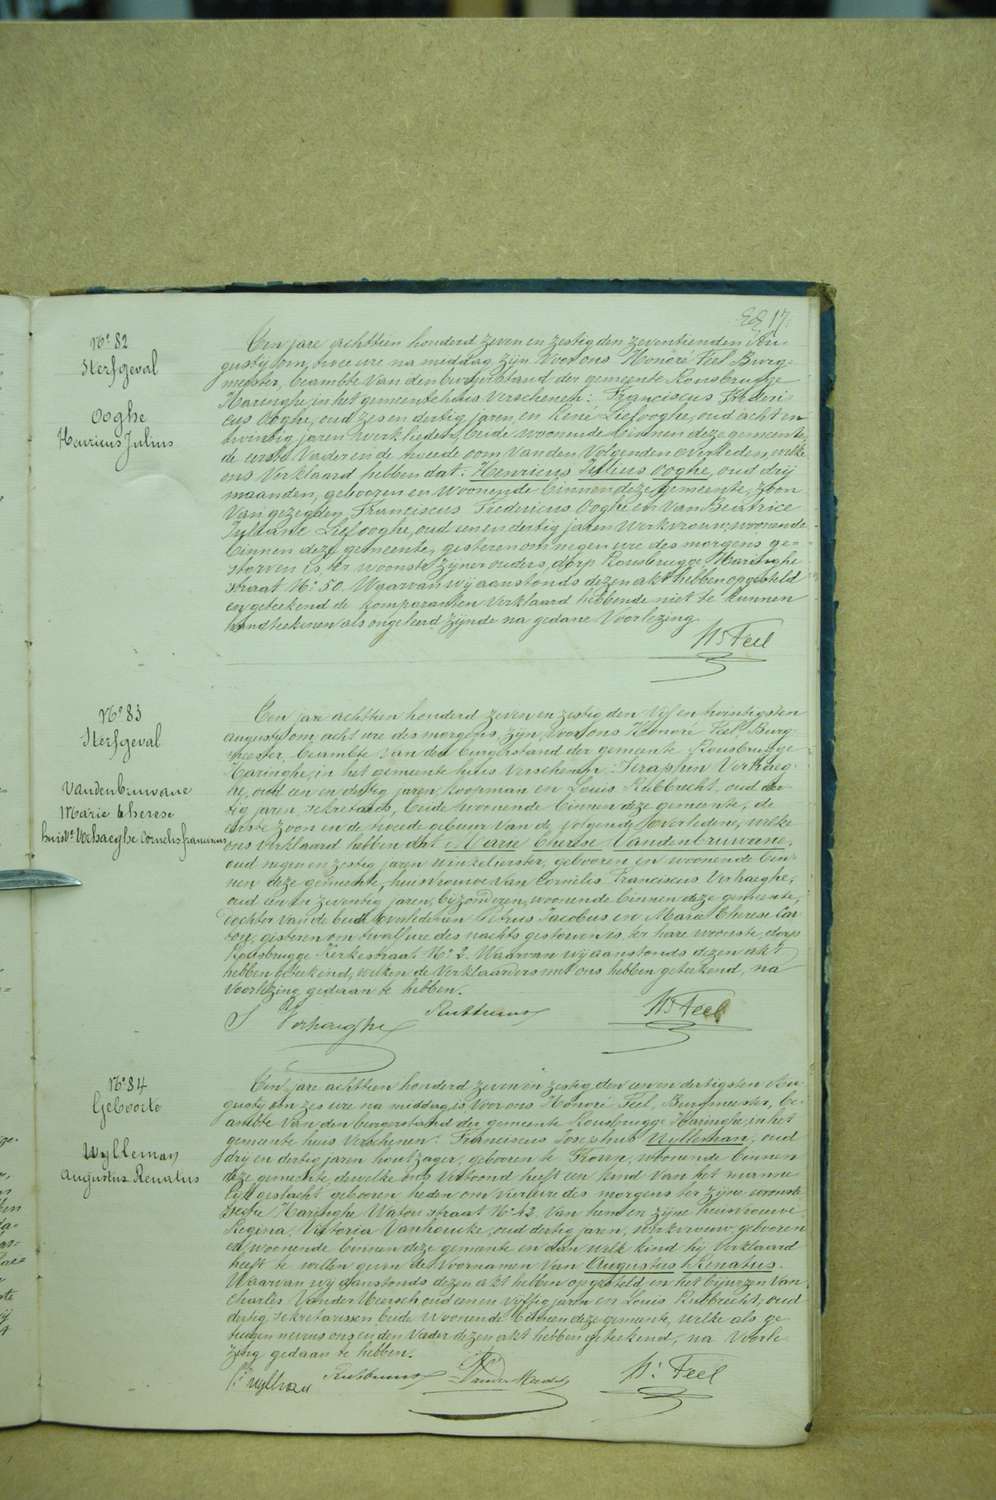 17.
N° 82
Sterfgeval
Ooghe
Henricus Julius
Een jare achttien honderd zeven en zestig den zeventienden Au-
gusty om twee ure na middag zijn voor ons Honoré Feel Burg-
meester, beambte van den burgerstand der gemeente Rousbrugge
Haringhe, in het gemeente huis verschenen: Franciscus Frederi-
cus Ooghe, oud zes en dertig jaren, en René Liefooghe, oud acht en
twintig jaren werklieden, beide woonende binnen deze gemeente,
de eerste Vader en de tweede oom van den volgenden overleden, welke
ons verklaard hebben dat: Henricus Julius Ooghe, oud drij
maanden, geboren en woonende binnen deze gemeente, zoon
van gezegden Franciscus Fredericus Ooghe en van Beatrice
Juliane Liefooghe, oud een en dertig jaren Werkvrouw, woonende
binnen deze gemeente, gisteren om negen ure des morgens ge-
storven is, ter woonste zijner ouders, dorp Rousbrugge Haringhe
straat N° 50. Waarvan wij aanstonds dezen akt hebben opgesteld
en geteekend de komparanten verklaard hebbende niet te kunnen
handteekenen als ongeleerd zijnde na gedane voorlezing.
H Feel
N° 83
Sterfgeval
Vandenbruwane
Marie therese
huisv. Verhaeghe Cornelis franciscus
Een jare achttien honderd zeven en zestig den vijf en twintigsten
augusty om acht ure des morgens, zijn, voor ons Honoré Feel Burg-
meester, beambte van den burgerstand der gemeente Rousbrugge
Haringhe, in het gemeente huis verschenen: Seraphin Verhaeg-
he, oud een en dertig jaren, koopman en Louis Rubbrecht, oud der-
tig jaren, sekretaris, beide woonende binnen deze gemeente, de
eerste zoon en de tweede gebuur van de volgende overledene, welke
ons verklaard hebben dat Marie Therese Vandenbruwane,
oud negen en zestig jaren winkelierster, geboren en woonende bin-
nen deze gemeente, huisvrouwe van Cornelis Franciscus Verhaeghe,
oud een en zeventig jaren, bijzonderen, woonende binnen deze gemeente,
dochter van de beide overledenen Petrus Jacobus en Marie Therese
gisteren om twalf ure des nachts gestorven is, ter hare woonste, dorp
Rousbrugge Kerkestraat N° 2. Waarvan wij aanstonds dezen akt
hebben geteekend, welken de verklaarders met ons hebben geteekend, na
voorlezing gedaan te hebben.
S Verhaeghe
H Feel
N° 84
Geboorte
Wylleman
Augustus Renatus
Een jare achttien honderd zeven en zestig den een en dertigsten Au-
gusty om zes ure na middag is voor ons Honoré Feel, Burgmeester, be-
ambte van den burgerstand der gemeente Rousbrugge Haringhe, in het
gemeente huis verschenen: Franciscus Josephus Wylleman, oud
drij en dertig jaren houtzager, geboren te woonende binnen
deze gemeente, dewelke ons vertoond heeft een kind van het manne-
lijk geslacht geboren heden om vier ure des morgens ter zijne woonste
Haringhe Watou straat N° 13. van hem en zijne huisvrouwe
Regina, Victoria Vanhoucke, oud dertig jaren, werkvrouw, geboren
en woonende binnen deze gemeente en dan welk kind hij verklaard
heeft te willen geven de voornamen van Augustus Renatus.
Waarvan wij aanstonds dezen akt hebben opgesteld, in het bijwezen van
Charles Vander Meersch oud een en vijftig jaren en Louis Rubbrecht, oud
dertig, sekretarissen beide woonende binnen deze gemeente, welke als ge-
tuigen nevens ons en den vader dezen akt hebben geteekend, na voorle-
zing gedaan te hebben.
H. Feel